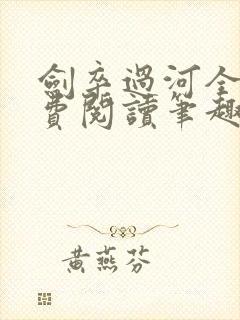 劍卒過河全
費閱讀筆趣
黃燕芬